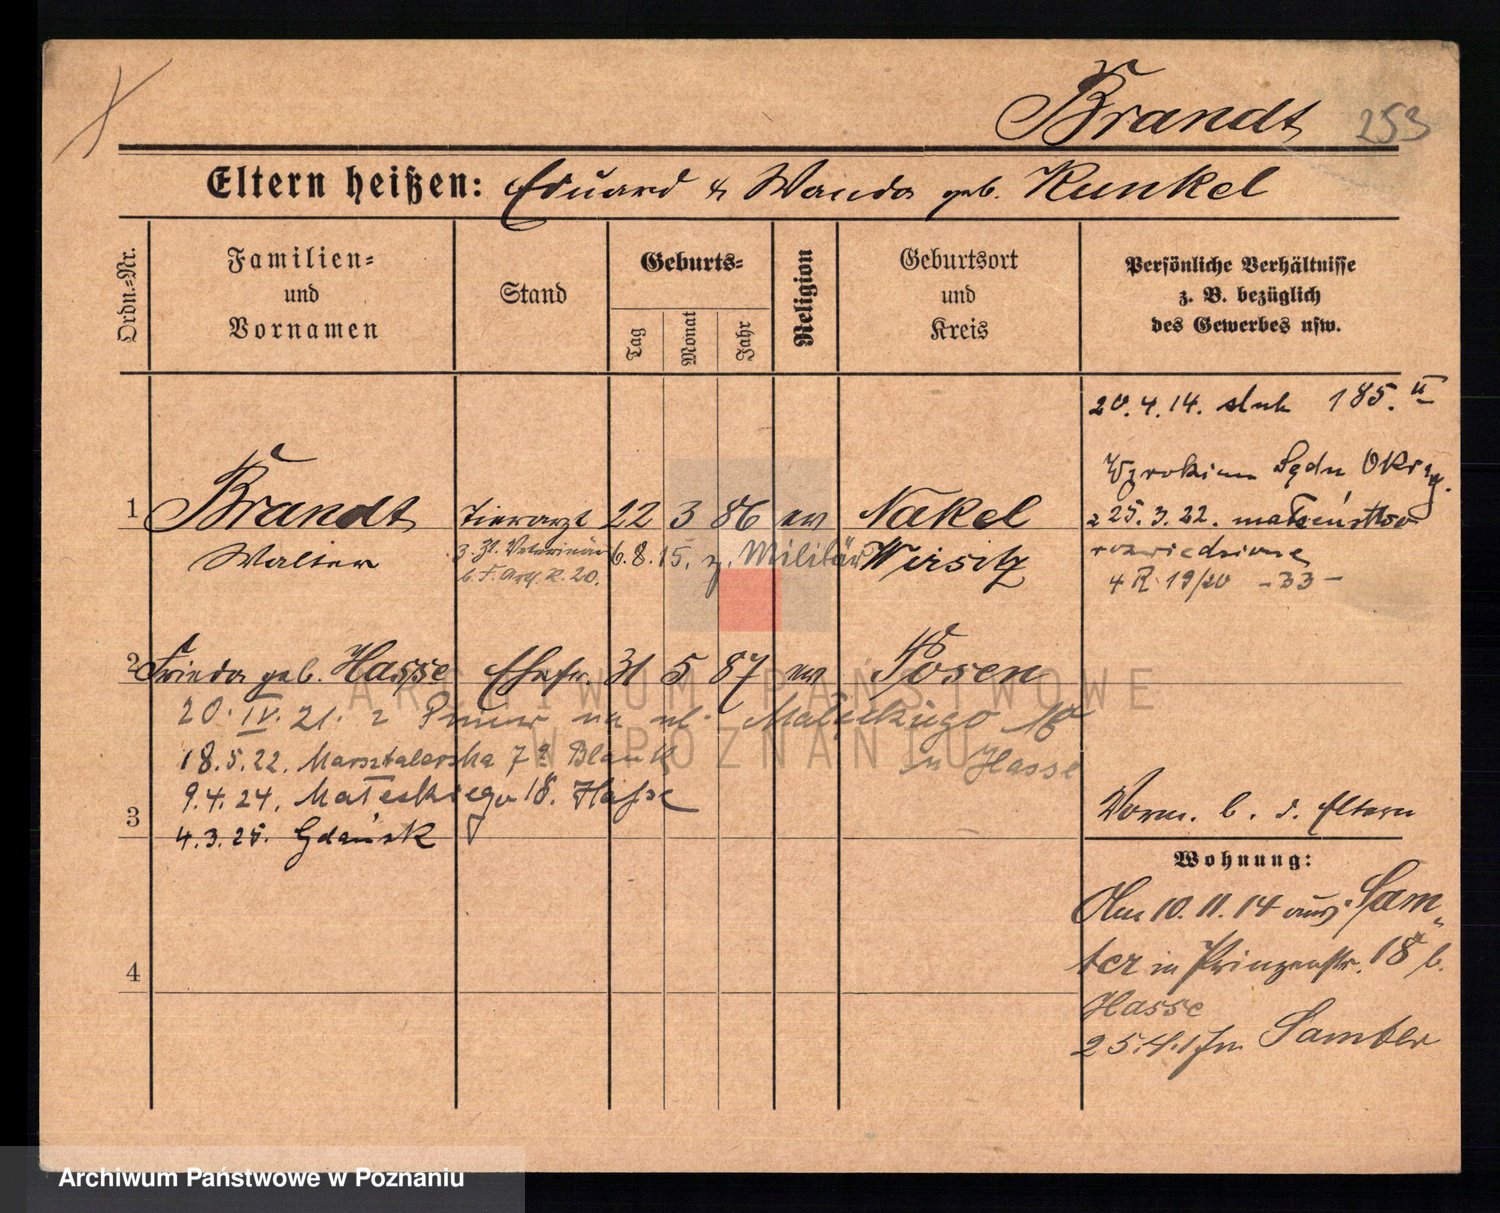 Brandt 253
Eltern heißen: Eduard & Wanda geb. Kunkel
Ordn.-Nr.
Familien-
und
Vornamen
Stand
Geburts-
Tag
Monat
Jahr
Religion
Geburtsort
und
Kreis
Persönliche Verhältnisse
z. B. bezüglich
des Gewerbes usw.
20.4.14. 185. II
1 Brandt Tierarzt 22 3 86 ev Nakel
Walter z. Zt. Veterinär 6.8.15. z. Militär Wirsitz
20.
Wyrokiem Sądu Okręg.
z 25.3.22. małżeństwo
rozwiedzione
4 R 19/20 -33-
2 Frieda geb. Hasse Ehefr. 31 5 87 ev Posen
20. IV. 21. z na ul. Małeckiego 18
18.5.22. Marsztalerska 7 Blank
Hasse
9.4.24. Małeckiego 18. Hasse
3
4.3.25. Gdańsk
Vorm. b. d. Eltern
Wohnung:
Am 10.11.14 aus Sam-
ter in Prinzenstr. 18 b.
Hasse
Samter
4
ARCHIWUM PAŃSTWOWE
W POZNANIU
Archiwum Państwowe w Poznaniu